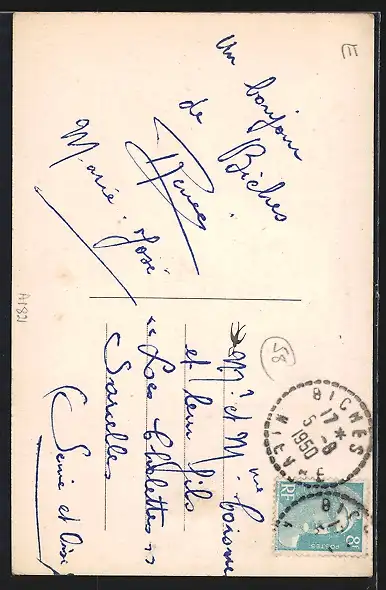 Un bonjour
de Biches
Renée
Marie-José
Mr et Mme
et leur fils
"Les Cholettes"
Sarcelles
(Seine et Oise
BICHES
17 *
5 - 8
1950
NIÈVRE
RF
8F
POSTES
58
E
A1821